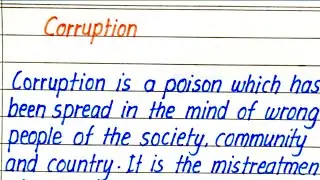 Corruption
Corruption is a poison which has
been spread in the mind of wrong
people of the society, community
and country. It is the mistreatmen